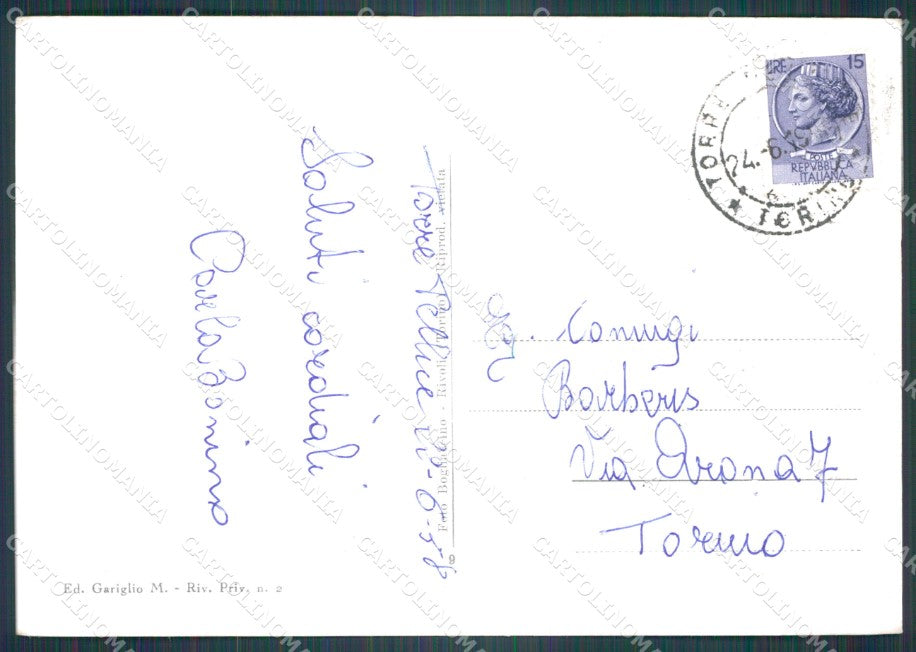 Torre Pellice 22-6-58
Saluti cordiali
Carla Bonino
Coniugi
Barberis
Via Arona 7
Torino
LIRE 15
POSTE
REPVBBLICA
ITALIANA
TORRE
24.-6.
TORINO
Foto Bogliano - Rivoli Riprod. vietata
Ed. Gariglio M. - Riv. Priv. n. 2
CARTOLINOMANIA